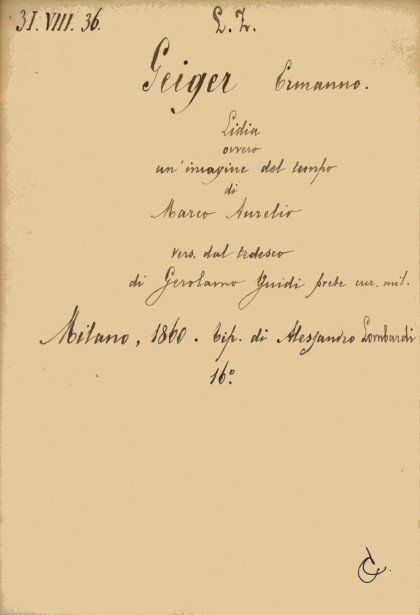 31.VIII.36.
L.T.
Geiger Ermanno.
Lidia
ovvero
un'imagine del tempo
di
Marco Aurelio
vers. dal tedesco
di Gerolamo Guidi prete cur. mil.
Milano, 1860. tip. di Alessandro Lombardi
16º